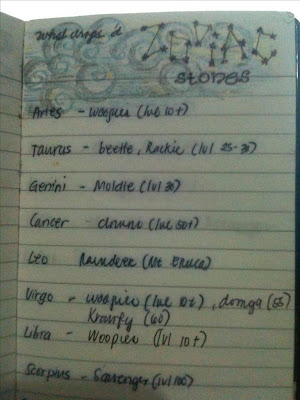 What drops d
ZODIAC
stones
Aries - woopiee (lvl 10+)
Taurus - beetle, Rockie (lvl 25-30)
Gemini - Moldie (lvl 30)
Cancer - (lvl 50+)
Leo Raindeer (Mt
Virgo - woopiee (lvl 10+), domga (55)
(60)
Libra - Woopiee (lvl 10+)
Scorpius - Scavenger (lvl 100)